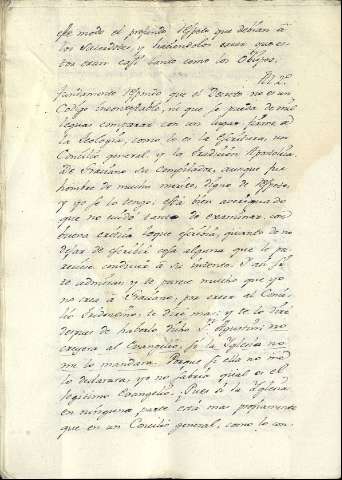 este modo el profundo respeto que debian à
los Sacerdotes, y haciendoles creer que es-
tos eran casi tanto como los Obispos.
Al 2º
fundamento respondo que el Decreto no es un
Codigo incontestable, ni que se pueda de mil
leguas comparar con un lugar firme de
la Teologia, como lo es la Escritura, un
Concilio general, y la tradicion Apostolica.
De Graciano su Compilador, aunque fue
hombre de mucho merito, digno de respeto,
y yo se lo tengo, està bien averiguado
que no cuidò tanto de examinar con
buena critica lo que escribia, quanto de no
dejar de escribir cosa alguna que le pa-
reciese conducir à su intento. Y asi si
te admiras, y te parece mucho que yo
no crea à Graciano, por creer al Conci-
lio Tridentino, te dire mas; y te lo dirè
despues de haberlo dicho S. Agustin: no
creyera al Evangelio, si la Iglesia no
me lo mandara. Porque si ella no me
lo declarara, yo no sabria qual es el
legitimo Evangelio. Pues si la Iglesia
en ninguna parte està mas propiamente
que en un Concilio general, como lo con-